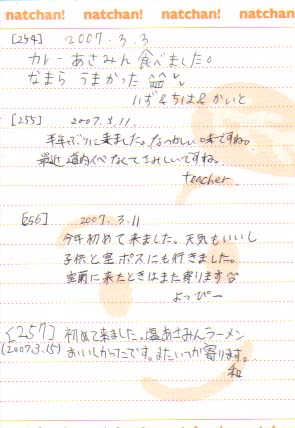 natchan! natchan! natchan! natchan!
[254] 2007.3.3
カレーあさみん食べました。
なまら うまかった
いず&ちは&かいと
[255] 2007.3.11.
半年ぶりに来ました。なつかしい味ですね。
最近 道内イベなくてさみしいですね。
teacher.
[256] 2007.3.11
今年初めて来ました。天気もいいし
子供と室ボスにも行きました。
室蘭に来たときはまた寄ります
よっぴー
[257] 初めて来ました。塩あさみんラーメン
(2007.3.15) おいしかったです。またいつか寄ります。
和